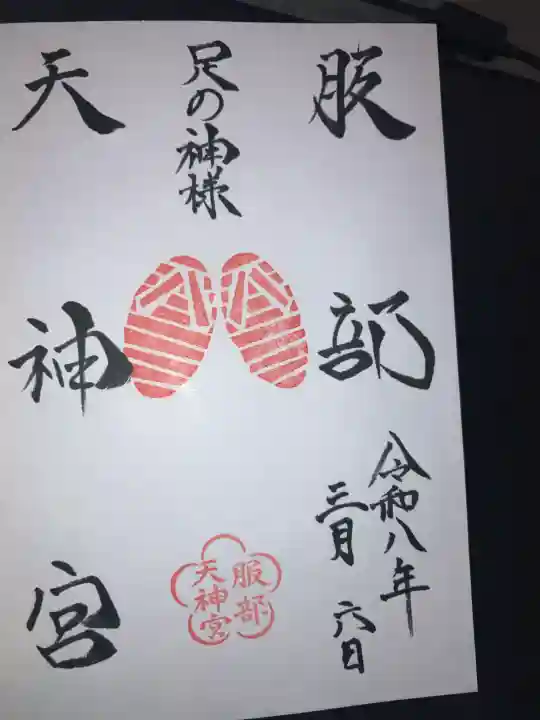 服部
令和八年
三月六日
足の神様
服部
天神宮
天神宮